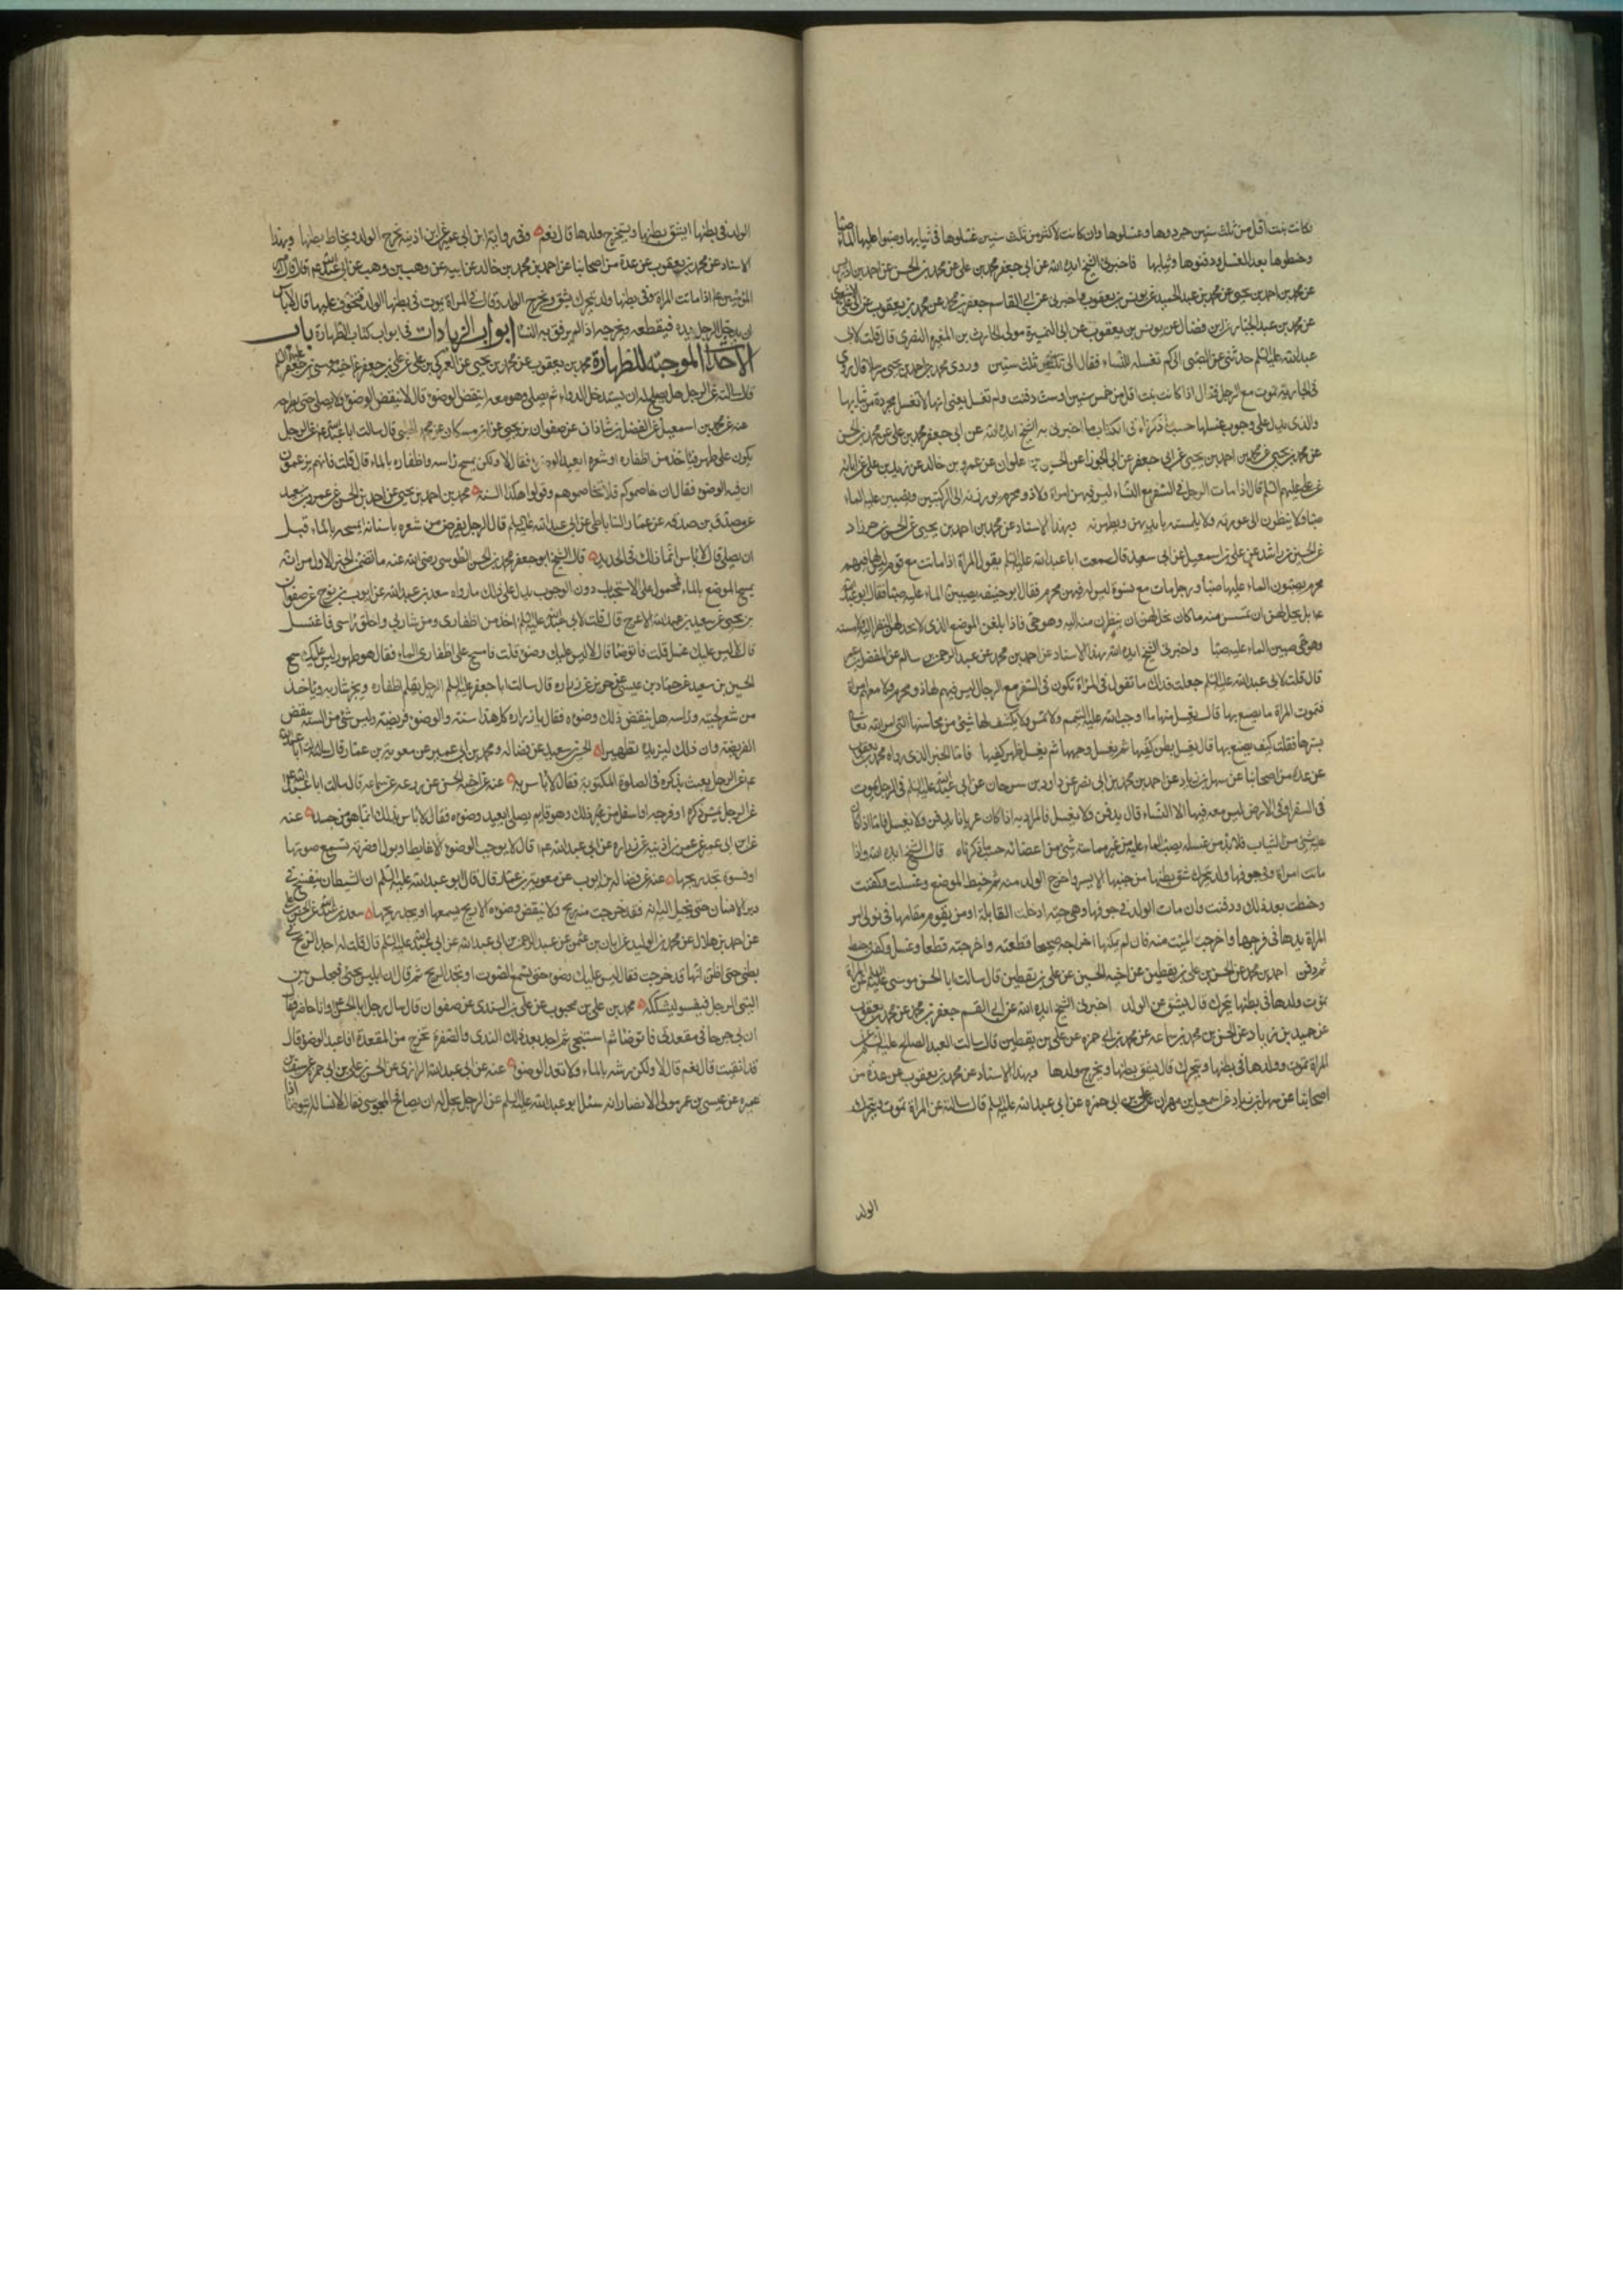 كانت بنت اقل من ثلث سنين جردوها وغسلوها وان كانت لاكثر من ثلث سنين غسلوها فى ثيابها وصبوا عليها الماء صبا
وحنطوها بعد الغسل ودفنوها وثيابها فاخبرنى الشيخ ايده الله عن ابى جعفر محمد بن على عن محمد بن الحسن عن احمد بن ادريس
عن محمد بن احمد بن يحيى عن محمد بن عبد الحميد عن يونس بن يعقوب واخبرنى عن ابى القاسم جعفر بن محمد عن محمد بن يعقوب عن ابى على الاشعرى
عن محمد بن عبد الجبار عن ابن فضال عن يونس بن يعقوب عن ابى النميرة مولى الحارث بن المغيره النضرى قال قلت لابى
عبد الله عليه السلم حدثنى عن الصبى الى كم تغسله النساء فقال الى ثلث سنين وروى محمد بن احمد بن يحيى مرسلا قال روى
فى الجارية تموت مع الرجل فقال اذا كانت بنت اقل من خمس سنين او ست دفنت ولم تغسل يعنى انها لا تغسل مجردة من ثيابها
والذى يدل على وجوب غسلها حسب ما ذكرناه فى الكتاب ما اخبرنى به الشيخ ايده الله عن ابى جعفر محمد بن على عن محمد بن الحسن
عن محمد بن يحيى عن محمد بن احمد بن يحيى عن ابى جعفر عن ابى الجوزا عن الحسين بن علوان عن عمرو بن خالد عن زيد بن على عن ابائه
عن على عليهم السلم قال اذا مات الرجل فى السفر مع النساء ليس فيهن امراة ولا ذو محرم يوزرنه الى الركبتين ويصببن عليه الماء
صبا ولا ينظرن الى عورته ولا يلمسنه بايديهن ويطهرنه وبهذا الاسناد عن محمد بن احمد بن يحيى عن الحسن بن خرزاد
عن الحسين بن راشد عن على بن اسمعيل عن ابى سعيد قال سمعت ابا عبد الله عليه السلم يقول المراة اذا ماتت مع قوم ليس لها فيهم
محرم يصبون الماء عليها صبا ورجل مات مع نسوة ليس له فيهن محرم فقال ابو حنيفه يصببن الماء عليه صبا فقال ابو عبد الله
ع بل يحل لهن ان يمسسن منه ما كان يحل لهن ان ينظرن منه اليه وهو حى فاذا بلغن الموضع الذى لا يحل لهن النظر اليه ولا مسه
وهو حى صببن الماء عليه صبا واخبرنى الشيخ ايده الله بهذا الاسناد عن احمد بن محمد عن عبد الرحمن بن سالم عن المفضل بن عمر
قال قلت لابى عبد الله عليه السلم جعلت فداك ما تقول فى المراة تكون فى السفر مع الرجال ليس فيهم لها ذو محرم ولا معهم امراة
فتموت المراة ما يصنع بها قال يغسل منها ما اوجب الله عليه التيمم ولا تمس ولا يكشف لها شىء من محاسنها التى امر الله تعالى
بسترها فقلت كيف يصنع بها قال يغسل بطن كفيها ثم يغسل وجهها ثم يغسل ظهر كفيها فاما الخبر الذى رواه محمد بن يعقوب
عن عدة من اصحابنا عن سهل بن زياد عن احمد بن محمد بن ابى نصر عن داود بن سرحان عن ابى عبد الله عليه السلم فى الرجل يموت
فى السفر او فى الارض ليس معه فيها الا النساء قال يدفن ولا يغسل فالمراد به اذا كان عريانا يدفن ولا يغسل فاما اذا كان
عليه شىء من الثياب فلا بد من غسله يصب الماء عليه من غير مماسة شىء من اعضائه حسب ما ذكرناه قال الشيخ ايده الله واذا
ماتت امراة وفى جوفها ولد يتحرك شق بطنها من جنبها الايسر واخرج الولد منه ثم خيط الموضع وغسلت وكفنت
وحنطت بعد ذلك ودفنت وان مات الولد فى جوفها وهى حية ادخلت القابلة او من يقوم مقامها فى تولى امر
المراة يدها فى فرجها واخرجت الميت منه فان لم يمكنها اخراجه صحيحا قطعته واخرجته قطعا وغسل وكفن وحنط
ثم دفن احمد بن محمد عن الحسن بن على بن يقطين عن اخيه الحسين عن على بن يقطين قال سالت ابا الحسن موسى عليه السلم عن المراة
تموت ولدها فى بطنها يتحرك قال يشق عن الولد اخبرنى الشيخ ايده الله عن ابى القسم جعفر بن محمد عن محمد بن يعقوب
عن حميد بن زياد عن الحسن بن محمد بن سماعه عن محمد بن ابى حمزه عن على بن يقطين قال سالت العبد الصالح عليه السلم عن
المراة تموت وولدها فى بطنها ويتحرك قال يشق بطنها ويخرج ولدها وبهذا الاسناد عن محمد بن يعقوب عن عدة من
اصحابنا عن سهل بن زياد عن اسمعيل بن مهران عن على بن ابى حمزه عن ابى عبد الله عليه السلم قال سالته عن المراة تموت ويتحرك
الولد
الولد فى بطنها ايشق بطنها ويستخرج ولدها قال نعم وفى رواية ابن ابى عمير عن ابن اذينه يخرج الولد ويخاط بطنها وبهذا
الاسناد عن محمد بن يعقوب عن عدة من اصحابنا عن احمد بن محمد بن خالد عن ابيه عن وهب بن وهب عن ابى عبد الله ع قال قال امير
المؤمنين ع اذا ماتت المراة وفى بطنها ولد يتحرك يشق ويخرج الولد وقال فى المراة يموت فى بطنها الولد فيتخوف عليها قال لا باس
ان يدخل الرجل يده فيقطعه ويخرجه اذا لم يرفق به النسا ابواب الزيادات فى ابواب كتاب الطهارة باب
الاحداث الموجبة للطهارة محمد بن يعقوب عن محمد بن يحيى عن العمركى بن على عن على بن جعفر عن اخيه موسى بن جعفر عليهم السلم
قال سالته عن الرجل هل يصلح له ان يستدخل الدواء ثم يصلى وهو معه اينقض الوضوء قال لا ينقض الوضوء ولا يصلى حتى يطرحه
عنه عن محمد بن اسمعيل عن الفضل بن شاذان عن صفوان بن يحيى عن ابن مسكان عن محمد الحلبى قال سالت ابا عبد الله ع عن الرجل
يكون على طهر فياخذ من اظفاره او شعره ايعيد الوضوء فقال لا ولكن يمسح راسه واظفاره بالماء قال قلت فانهم يزعمون
ان فيه الوضوء فقال ان خاصموكم فلا تخاصموهم وقولوا هكذا السنة محمد بن احمد بن يحيى عن احمد بن الحسن عن عمرو بن سعيد
عن مصدق بن صدقه عن عمار الساباطى عن ابى عبد الله عليه السلم قال الرجل يقرض من شعره باسنانه ايمسحه بالماء قبل
ان يصلى قال لا باس انما ذلك فى الحديد قال الشيخ ابو جعفر محمد بن الحسن الطوسى رضى الله عنه ما تضمن الخبر الاول من انه
يمسح الموضع بالماء محمول على الاستحباب دون الوجوب يدل على ذلك ما رواه سعد بن عبد الله عن ايوب بن نوح عن صفوان
بن يحيى عن سعيد بن عبد الله الاعرج قال قلت لابى عبد الله عليه السلم اخذ من اظفارى ومن شاربى واحلق راسى فاغتسل
قال لا ليس عليك غسل قلت فاتوضا قال لا ليس عليك وضوء قلت فامسح على اظفارى الماء فقال هو طهور ليس عليك مسح
الحسين بن سعيد عن حماد بن عيسى عن حريز عن زراره قال سالت ابا جعفر عليه السلم الرجل يقلم اظفاره ويجز شاربه وياخذ
من شعر لحيته وراسه هل ينقض ذلك وضوءه فقال يا زراره كل هذا سنة والوضوء فريضة وليس شىء من السنة ينقض
الفريضة وان ذلك ليزيده تطهيرا الحسين بن سعيد عن فضاله ومحمد بن ابى عمير عن معوية بن عمار قال سالت ابا عبد الله
ع عن الرجل يعبث بذكره فى الصلوة المكتوبة فقال لا باس به عنه عن اخيه الحسن عن زرعه عن سماعه قال سالت ابا عبد الله ع
عن الرجل يمس ذكره او فرجه او اسفل من ذلك وهو قايم يصلى ايعيد وضوءه فقال لا باس بذلك انما هو من جسده عنه
عن ابن ابى عمير عن عمر بن اذينه عن زراره عن ابى عبد الله ع قال لا يوجب الوضوء الا غايط او بول او ضرطة تسمع صوتها
او فسوة تجد ريحها عنه عن فضالة بن ايوب عن معوية بن عمار قال قال ابو عبد الله عليه السلم ان الشيطان ينفخ فى
دبر الانسان حتى يخيل اليه انه قد خرجت منه ريح ولا ينقض وضوءه الا ريح يسمعها او يجد ريحها سعد بن عبد الله عن الحسن بن على
عن احمد بن هلال عن محمد بن الوليد عن ابان بن عثمن عن عبد الرحمن بن ابى عبد الله عن ابى عبد الله عليه السلم قال قلت له اجد الريح فى
بطنى حتى اظن انها قد خرجت فقال ليس عليك وضوء حتى تسمع الصوت او تجد الريح ثم قال ان ابليس يجىء فيجلس بين
اليتى الرجل فيفسو ليشككه محمد بن على بن محبوب عن على بن السندى عن صفوان قال سال رجل ابا الحسن ع وانا حاضر فقال
ان بى جرحا فى مقعدتى فاتوضا ثم استنجى ثم اجد بعد ذلك الندى والصفرة تخرج من المقعدة افاعيد الوضوء قال
قد انقيت قال نعم قال لا ولكن رشه بالماء ولا تعد الوضوء عنه عن ابى عبد الله الرازى عن الحسن بن على بن ابى حمزه عن سيف بن
عميره عن عيسى بن عمر مولى الانصار انه سئل ابو عبد الله عليه السلم عن الرجل يحل له ان يصافح المجوسى فقال لا